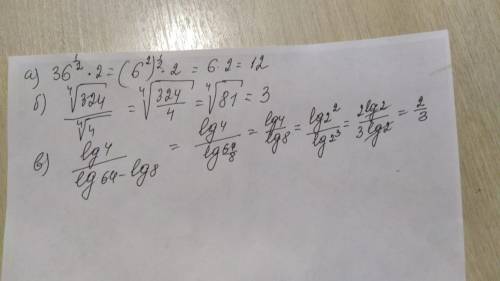 а) 36^{1/2} · 2 = (6^2)^{1/2} · 2 = 6 · 2 = 12
б) ∜324 / ∜4 = ∜(324/4) = ∜81 = 3
в) lg4 / (lg64 - lg8) = lg4 / lg(64/8) = lg4 / lg8 = lg2^2 / lg2^3 = 2lg2 / 3lg2 = 2/3